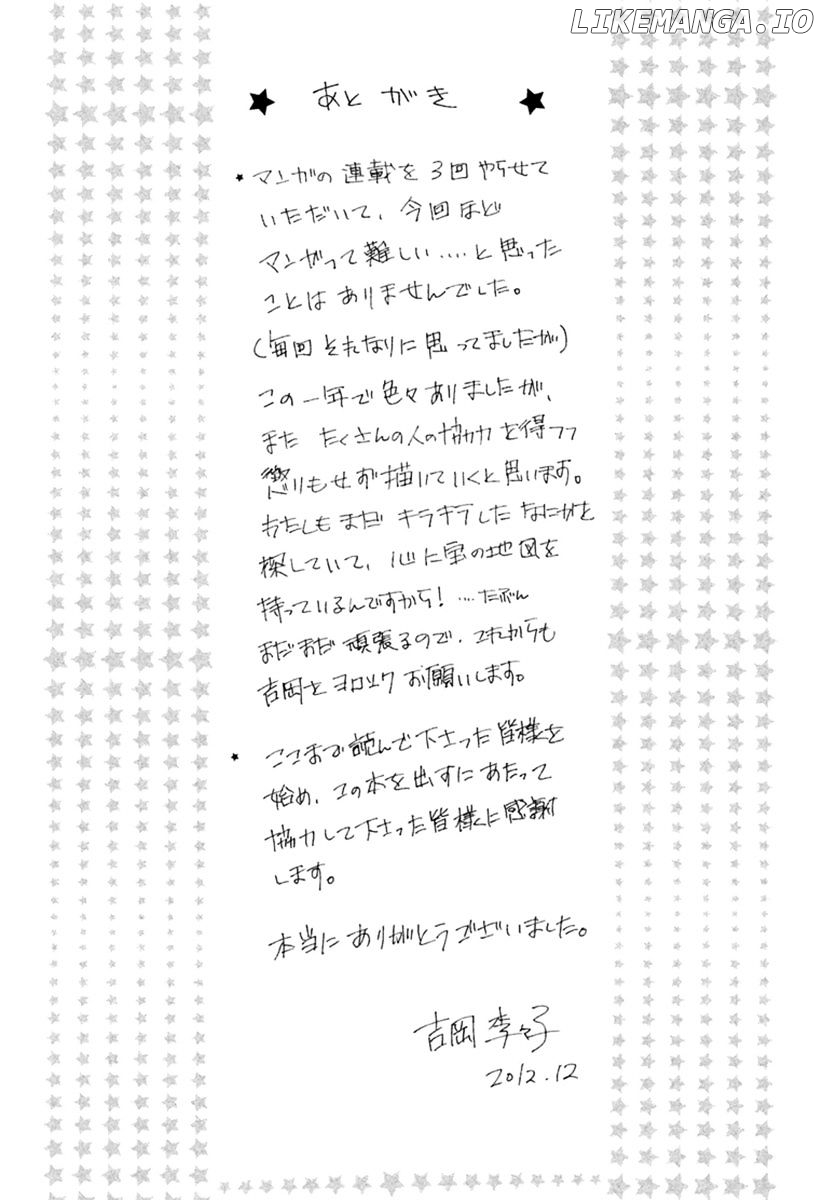 LIKEMANGA.IO
あとがき
マンガの連載を3回やらせて
いただいて、今回ほど
マンガって難しい‥‥と思った
ことはありませんでした。
(毎回それなりに思ってましたが)
この一年で色々ありましたが、
また たくさんの人の協力を得つつ
懲りもせず描いていくと思います。
わたしもまだ キラキラした なにかを
探していて、心に宝の地図を
持っているんですから!‥‥たぶん
まだまだ頑張るので、これからも
吉岡を ヨロシク お願いします。
ここまで読んで下さった皆様を
始め、この本を出すにあたって
協力して下さった皆様に感謝
します。
本当にありがとうございました。
吉岡 李々子
2012.12